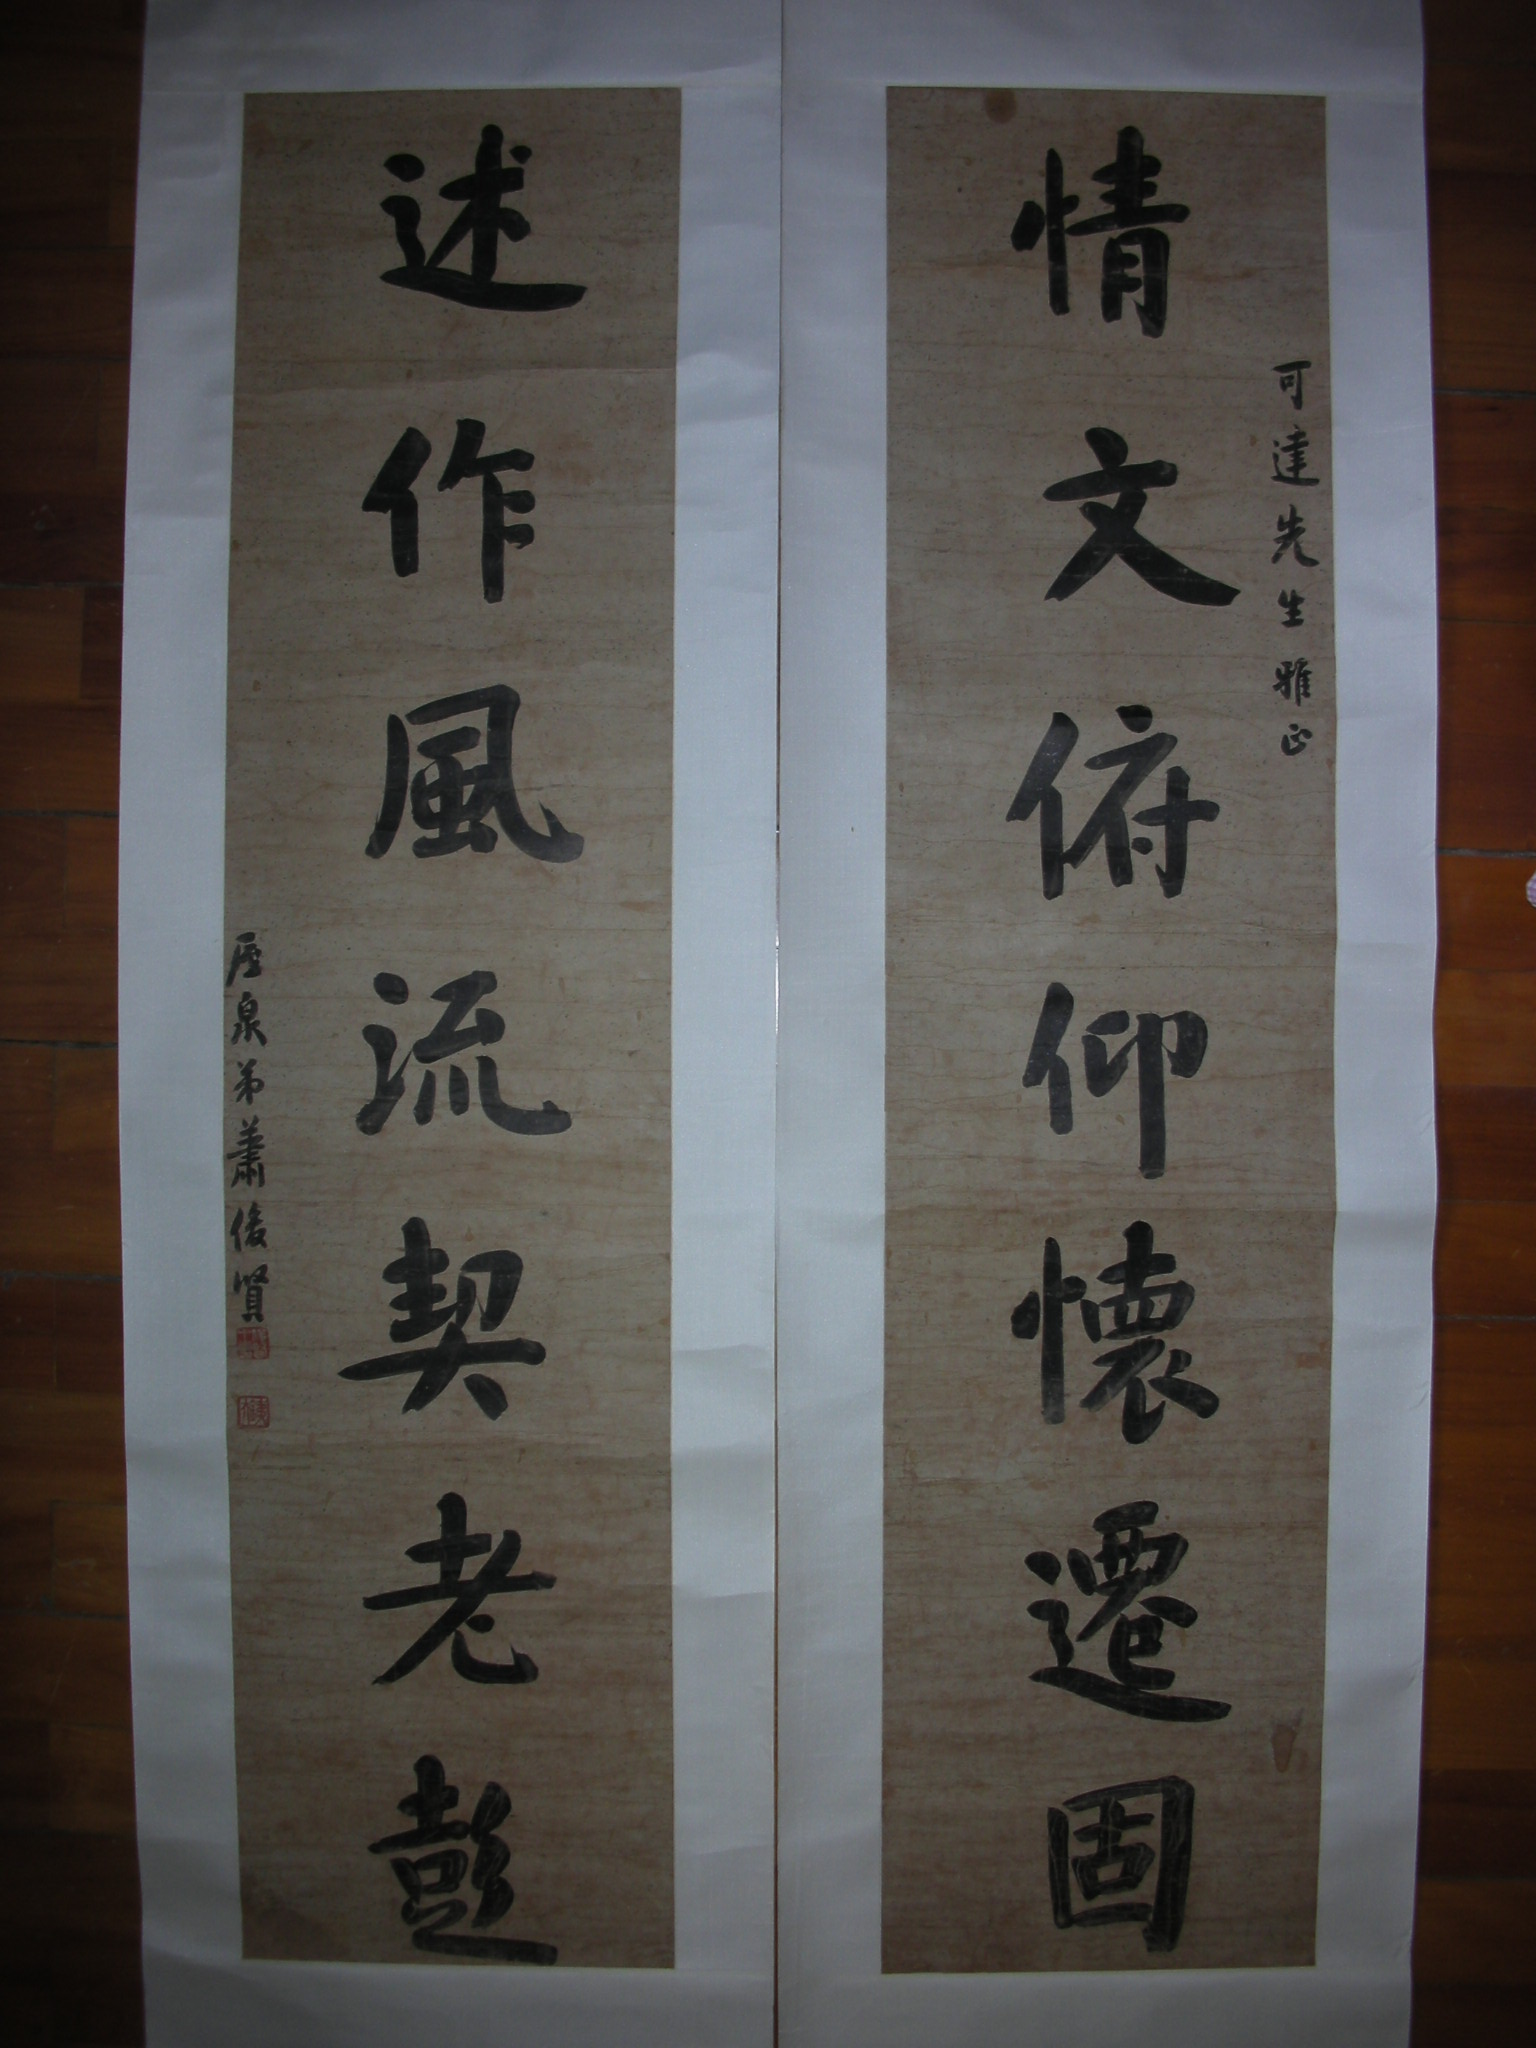 可達先生雅正
情文俯仰懷遷固
述作風流契老彭
厔泉弟蕭俊賢